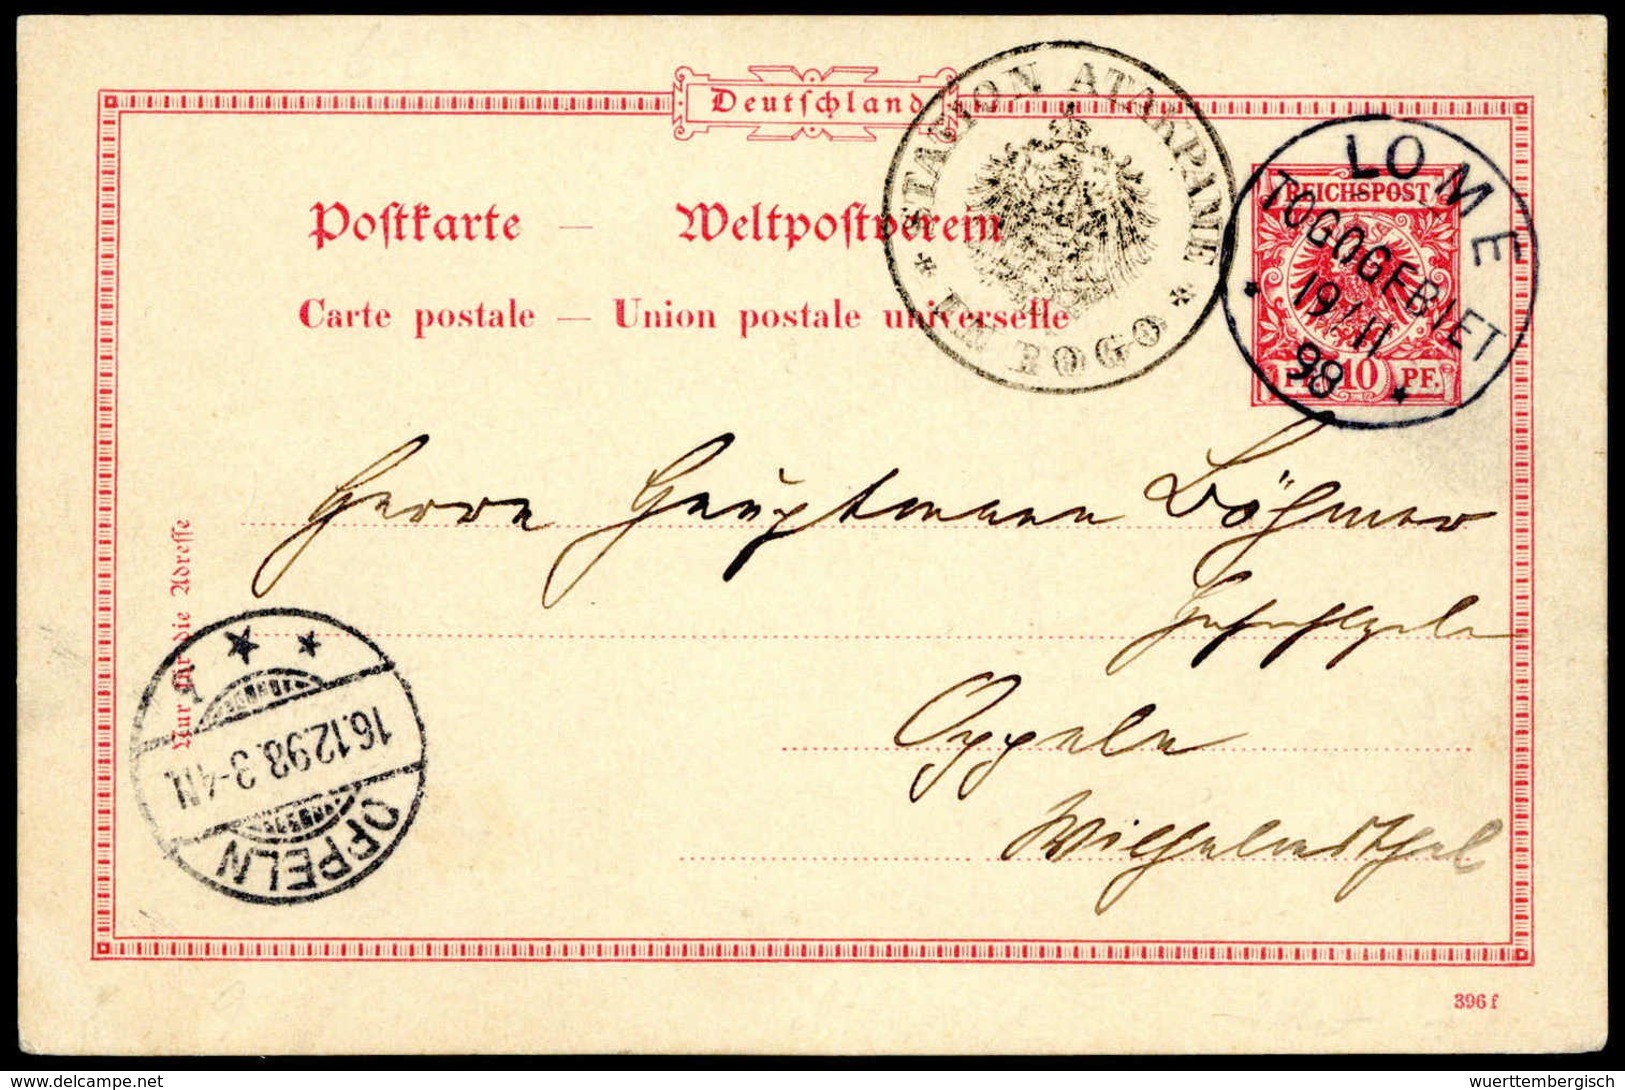 Deutschland
STATION ATAKPAME
IN TOGO
LOME
TOGOGEBIET
19/11
98
REICHSPOST
PF. 10 PF.
Postkarte — Weltpostverein
Carte postale — Union postale universelle
Herrn Hauptmann Böhmer
Oppeln
Wilhelmsthal
Nur für die Adresse
OPPELN
16.12.98.3-4N.
1
396 f
www.wuerttembergisch